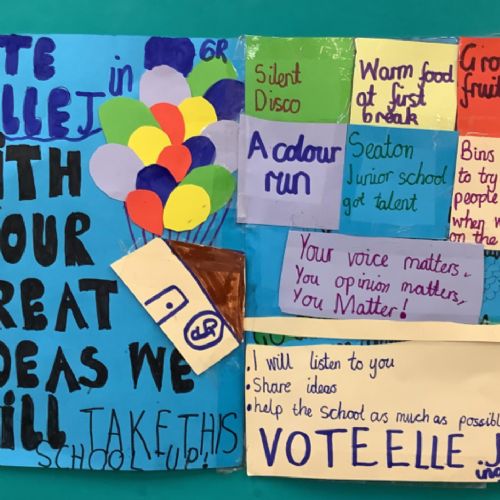 TE
ELLE J in 6R
ITH
OUR
REAT
DEAS WE
ILL TAKE THIS
SCHOOL UP!
Silent
Disco
Warm food
at first
break
Gro
fruit
A colour
run
Seaton
Junior school
got talent
Bins
to try
people
when w
on the
Your voice matters,
You opinion matters,
You Matter!
• I will listen to you
• Share ideas
• help the school as much as possibl
VOTE ELLE J
in